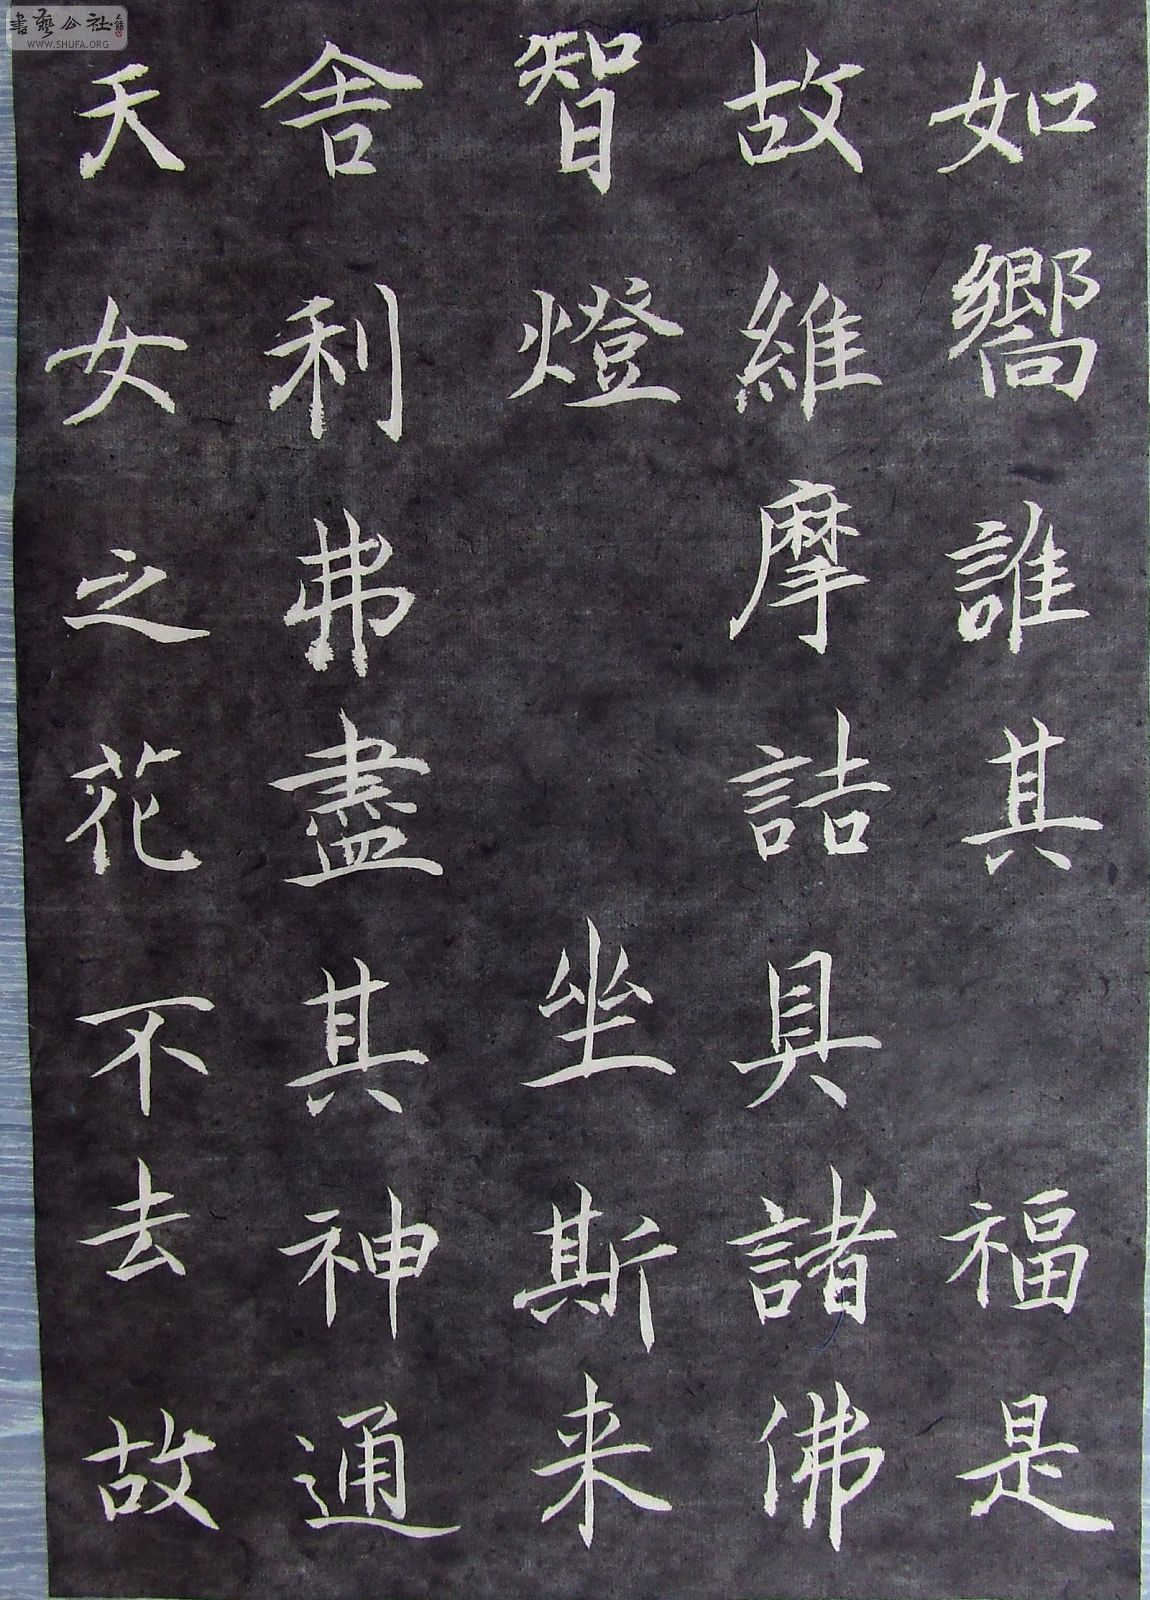 如嚮誰其福是
故維摩詰具諸佛
智燈坐斯来
舍利弗盡其神通
天女之花不去故
書藝公社
WWW.SHUFA.ORG